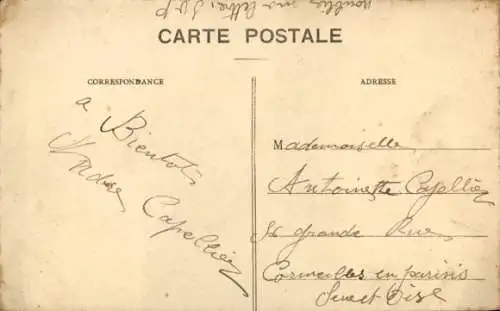 noubliez ma lettre, S V P
CARTE POSTALE
CORRESPONDANCE
a Bientôt
Andrée
Capellier
ADRESSE
Mademoiselle
Antoinette Capellier
grande Rue
Cormeilles en parisis
Seine et Oise